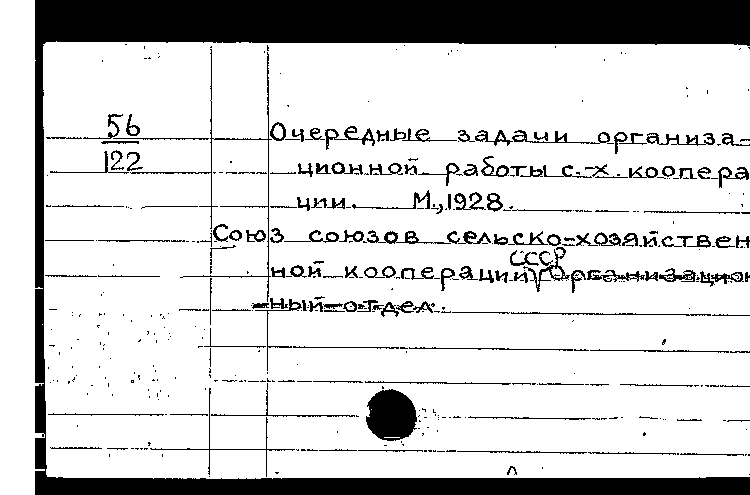 56
122
Очередные задачи организа-
ционной работы с.-х. коопера
ции. М., 1928.
Союз союзов сельско-хозяйствен
ной кооперации СССР Организацион
ный отдел.